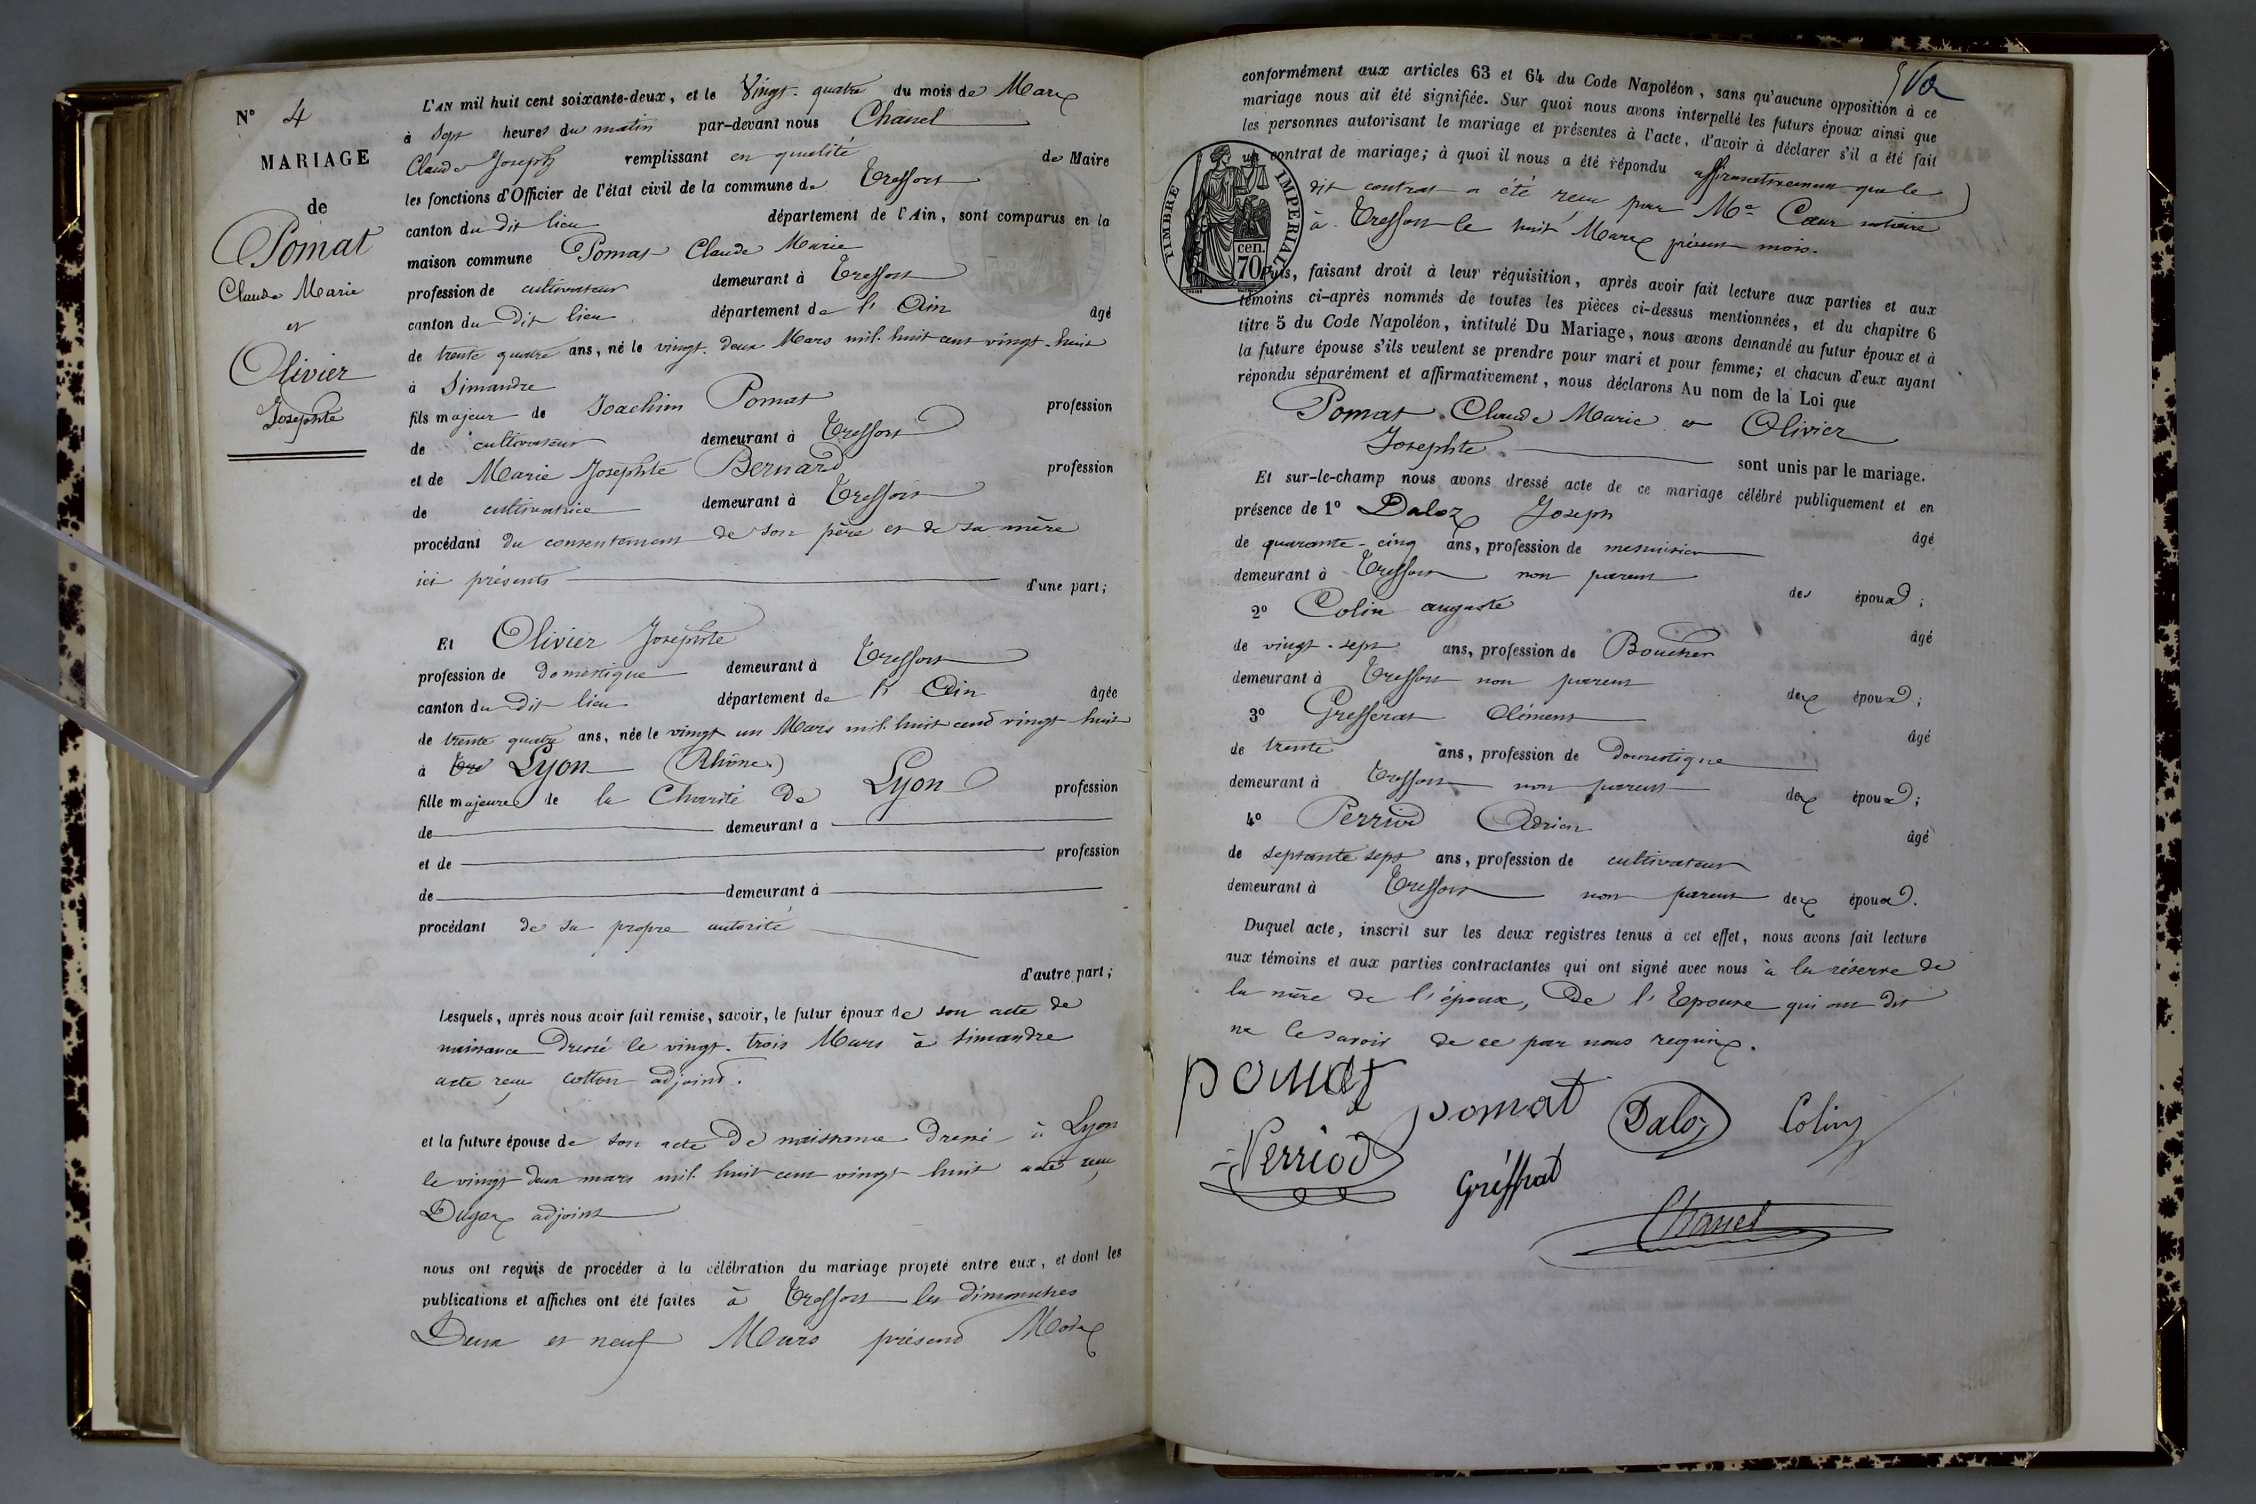 N° 4
MARIAGE
de
Pomat
Claude Marie
et
Olivier
Josephte
L'AN mil huit cent soixante-deux, et le Vingt-quatre du mois de Mars
à sept heures du matin par-devant nous Chanel
Claude Joseph remplissant en qualité de Maire
les fonctions d'Officier de l'état civil de la commune de Treffort
canton du dit lieu département de l'Ain, sont comparus en la
maison commune Pomat Claude Marie
profession de cultivateur demeurant à Treffort
canton du dit lieu département de l'Ain âgé
de trente quatre ans, né le vingt-deux Mars mil huit cent vingt-huit
à Simandre
fils majeur de Joachim Pomat profession
de cultivateur demeurant à Treffort
et de Marie Josephte Bernard profession
de cultivatrice demeurant à Treffort
procédant du consentement de son père et de sa mère
ici présents d'une part;
Et Olivier Josephte
profession de domestique demeurant à Treffort
canton du dit lieu département de l'Ain âgée
de trente quatre ans, née le vingt un Mars mil huit cent vingt huit
à Lyon (Rhône)
fille majeure de la Charité de Lyon profession
de demeurant a
et de profession
de demeurant à
procédant de sa propre autorité
d'autre part;
Lesquels, après nous avoir fait remise, savoir, le futur époux de son acte de
naissance dressé le vingt-trois Mars à simandre
acte reçu cotton adjoint.
et la future épouse de son acte de naissance dressé à Lyon
le vingt deux mars mil huit cent vingt huit acte reçu
Dugaz adjoint
nous ont requis de procéder à la célébration du mariage projeté entre eux, et dont les
publications et affiches ont été faites à Treffort les dimanches
Deux et neuf Mars présent Mois
conformément aux articles 63 et 64 du Code Napoléon, sans qu'aucune opposition à ce
mariage nous ait été signifiée. Sur quoi nous avons interpellé les futurs époux ainsi que
les personnes autorisant le mariage et présentes à l'acte, d'avoir à déclarer s'il a été fait
un contrat de mariage; à quoi il nous a été répondu affirmativement que le
dit contrat a été reçu par Me Cœur notaire
à Treffort le huit Mars présent mois.
TIMBRE IMPERIAL
cen.
70
Puis, faisant droit à leur réquisition, après avoir fait lecture aux parties et aux
témoins ci-après nommés de toutes les pièces ci-dessus mentionnées, et du chapitre 6
titre 5 du Code Napoléon, intitulé Du Mariage, nous avons demandé au futur époux et à
la future épouse s'ils veulent se prendre pour mari et pour femme; et chacun d'eux ayant
répondu séparément et affirmativement, nous déclarons Au nom de la Loi que
Pomat Claude Marie et Olivier
Josephte sont unis par le mariage.
Et sur-le-champ nous avons dressé acte de ce mariage célébré publiquement et en
présence de 1° Daloz Joseph âgé
de quarante-cinq ans, profession de menuisier
demeurant à Treffort non parent des époux;
2° Colin auguste âgé
de vingt-sept ans, profession de Boucher
demeurant à Treffort non parent des époux;
3° Grefferat Clément âgé
de trente ans, profession de domestique
demeurant à Treffort non parent des époux;
4° Perriod Adrien âgé
de septante sept ans, profession de cultivateur
demeurant à Treffort non parent des époux.
Duquel acte, inscrit sur les deux registres tenus à cet effet, nous avons fait lecture
aux témoins et aux parties contractantes qui ont signé avec nous à la réserve de
la mère de l'époux, De l'Epouse qui ont dit
ne le savoir de ce par nous requis.
pomat
pomat
Daloz
Colin
Perriod
Gréffrat
Chanel